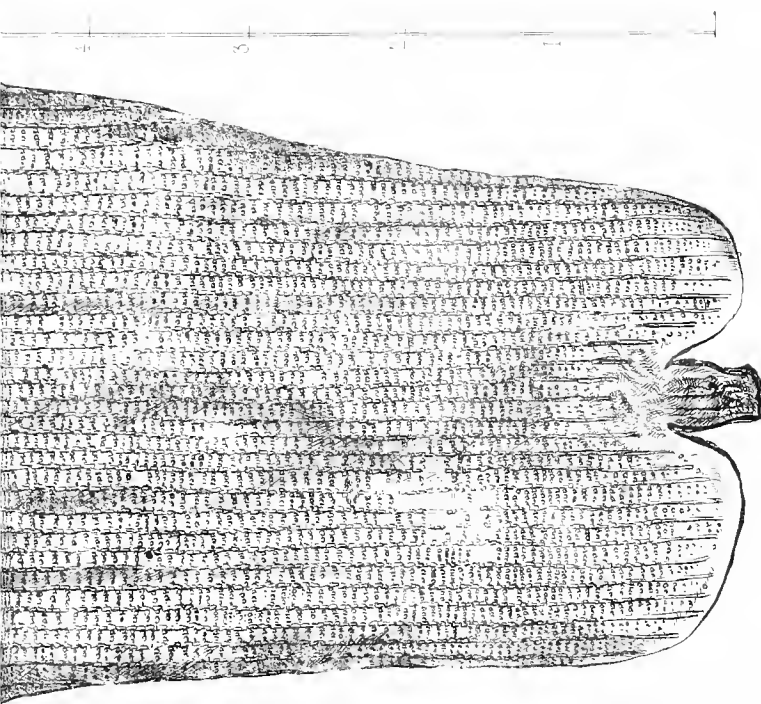 4 3 2 1